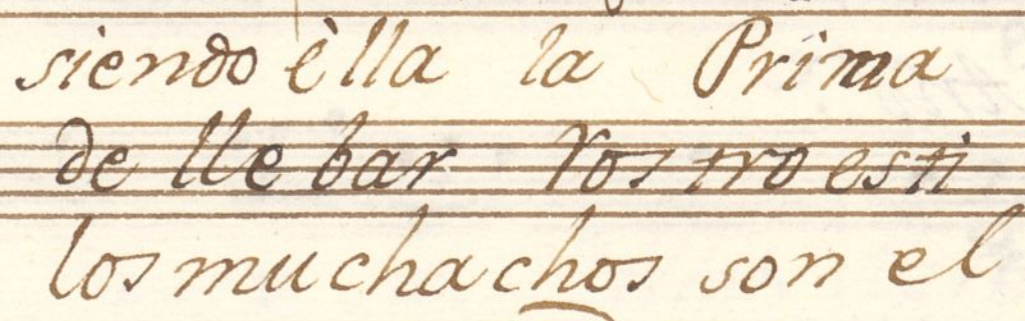 siendo èlla la Prima
de llebar Rostro esti
los muchachos son el